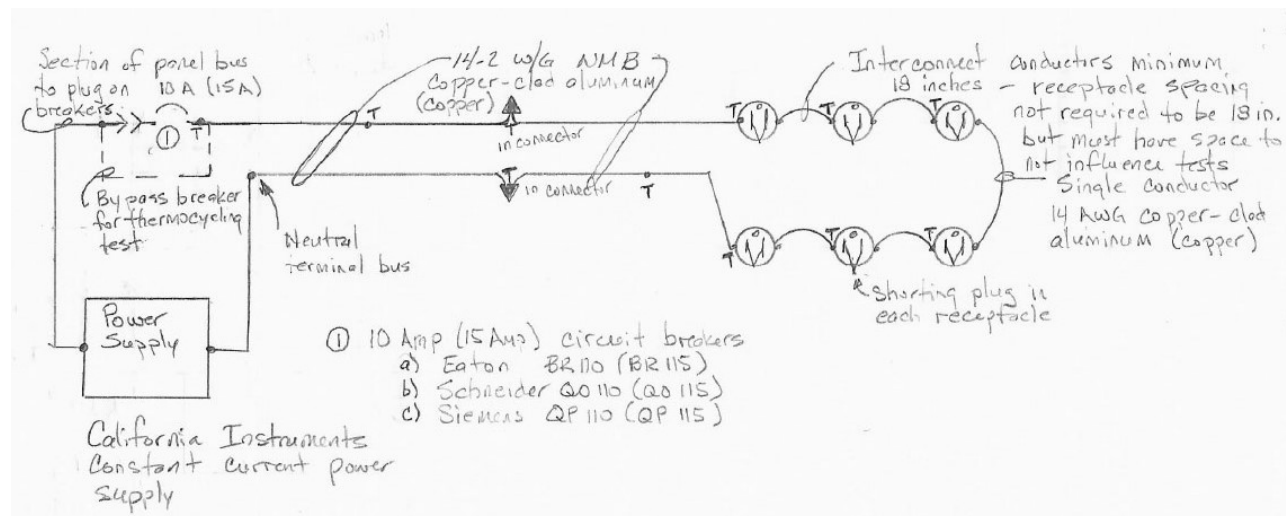 Section of panel bus
to plug on
breakers.
10 A (15A)
1
T
By pass breaker
for thermocycling
test
Neutral
terminal bus
14-2 w/G NMB
Copper-clad aluminum
(copper)
T
T
in connector
T
in connector
T
T
T
T
Interconnect conductors minimum
18 inches - receptacle spacing
not required to be 18 in.
but must have space to
not influence tests
Single conductor
14 AWG copper-clad
aluminum (copper)
T
T
T
Shorting plug in
each receptacle
Power
Supply
California Instruments
Constant current power
supply
1 10 Amp (15 Amp) circuit breakers
a) Eaton BR110 (BR115)
b) Schneider QO 110 (QO 115)
c) Siemens QP 110 (QP 115)